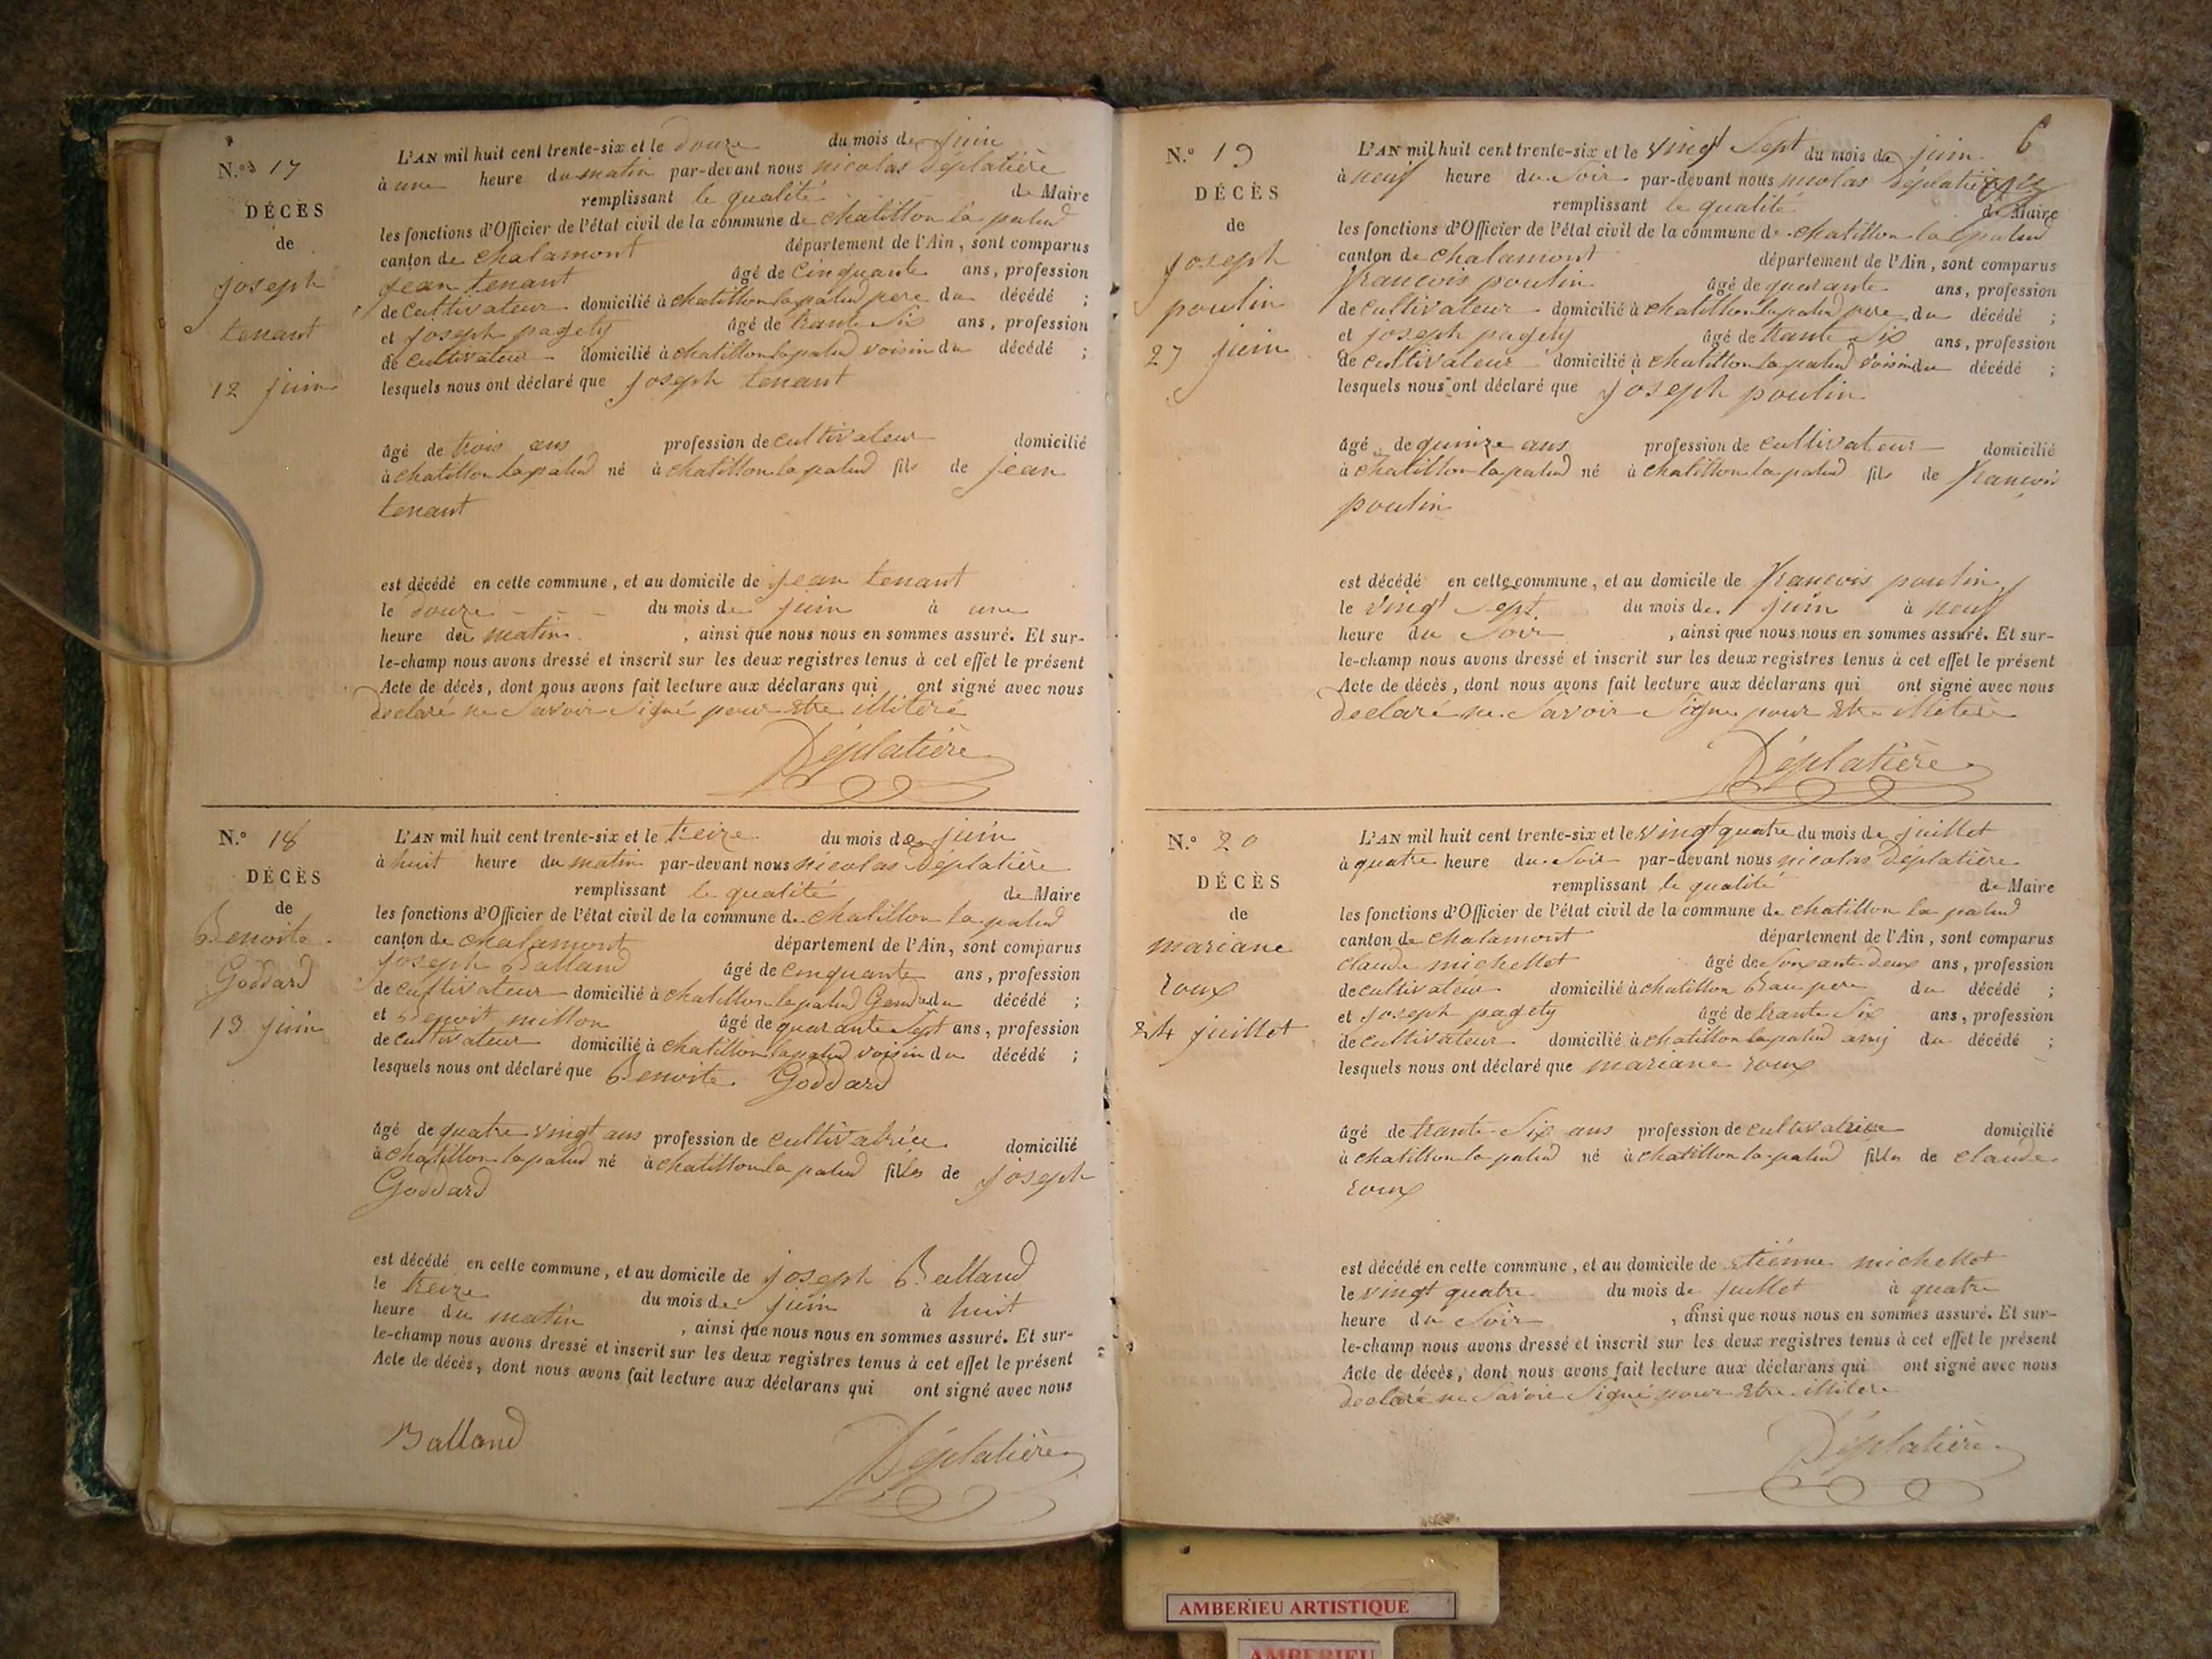 N.º 17
DÉCÈS
de
joseph
tenant
12 juin
L'AN mil huit cent trente-six et le douze du mois de juin
à une heure du matin par-devant nous nicolas Déplatière
remplissant le qualité de Maire
les fonctions d'Officier de l'état civil de la commune de chatillon la palud
canton de chalamont département de l'Ain, sont comparus
jean tenant âgé de cinquante ans, profession
de cultivateur domicilié à chatillon la palud pere du décédé ;
et joseph pagety âgé de trante six ans, profession
de cultivateur domicilié à chatillon la palud voisin du décédé ;
lesquels nous ont déclaré que joseph tenant
âgé de trois ans profession de cultivateur domicilié
à chatillon la palud né à chatillon la palud fils de jean
tenant
est décédé en cette commune, et au domicile de jean tenant
le douze du mois de juin à une
heure du matin , ainsi que nous nous en sommes assuré. Et sur-
le-champ nous avons dressé et inscrit sur les deux registres tenus à cet effet le présent
Acte de décès, dont nous avons fait lecture aux déclarans qui ont signé avec nous
declaré ne Savoir Signé pour Etre illitéré
Déplatière
N.º 18
DÉCÈS
de
Benoite
Goddard
13 juin
L'AN mil huit cent trente-six et le treize du mois de juin
à huit heure du matin par-devant nous nicolas Déplatière
remplissant le qualité de Maire
les fonctions d'Officier de l'état civil de la commune de chatillon la palud
canton de chalamont département de l'Ain, sont comparus
joseph Balland âgé de cinquante ans, profession
de cultivateur domicilié à chatillon la palud Gendre du décédé ;
et Benoit millon âgé de quarante Sept ans, profession
de cultivateur domicilié à chatillon la palud voisin du décédé ;
lesquels nous ont déclaré que Benoite Goddard
âgé de quatre vingt ans profession de cultivatrice domicilié
à chatillon la palud né à chatillon la palud filles de joseph
Goddard
est décédé en cette commune, et au domicile de joseph Balland
le treize du mois de juin à huit
heure du matin , ainsi que nous nous en sommes assuré. Et sur-
le-champ nous avons dressé et inscrit sur les deux registres tenus à cet effet le présent
Acte de décès, dont nous avons fait lecture aux déclarans qui ont signé avec nous
Balland Déplatière
6
N.º 19
DÉCÈS
de
joseph
poulin
27 juin
L'AN mil huit cent trente-six et le vingt Sept du mois de juin
à neuf heure du Soir par-devant nous nicolas Déplatière
remplissant le qualité de Maire
les fonctions d'Officier de l'état civil de la commune de chatillon la palud
canton de chalamont département de l'Ain, sont comparus
francois poulin âgé de quarante ans, profession
de cultivateur domicilié à chatillon la palud pere du décédé ;
et joseph pagety âgé de trante Six ans, profession
de cultivateur domicilié à chatillon la palud voisin du décédé ;
lesquels nous ont déclaré que joseph poulin
âgé de quinze ans profession de cultivateur domicilié
à chatillon la palud né à chatillon la palud fils de francois
poulin
est décédé en cette commune, et au domicile de francois poulin
le vingt Sept du mois de juin à neuf
heure du Soir , ainsi que nous nous en sommes assuré. Et sur-
le-champ nous avons dressé et inscrit sur les deux registres tenus à cet effet le présent
Acte de décès, dont nous avons fait lecture aux déclarans qui ont signé avec nous
declaré ne Savoir Signe pour Etre
Déplatière
N.º 20
DÉCÈS
de
mariane
roux
24 juillet
L'AN mil huit cent trente-six et le vingt quatre du mois de juillet
à quatre heure du Soir par-devant nous nicolas Déplatière
remplissant le qualité de Maire
les fonctions d'Officier de l'état civil de la commune de chatillon la palud
canton de chalamont département de l'Ain, sont comparus
claude michellot âgé de Soixante deux ans, profession
de cultivateur domicilié à chatillon Baupere du décédé ;
et joseph pagety âgé de trante Six ans, profession
de cultivateur domicilié à chatillon la palud amj du décédé ;
lesquels nous ont déclaré que mariane roux
âgé de trante Six ans profession de cultivatrice domicilié
à chatillon la palud né à chatillon la palud filles de claude
roux
est décédé en cette commune, et au domicile de Etiénne michellot
le vingt quatre du mois de juillet à quatre
heure du Soir , ainsi que nous nous en sommes assuré. Et sur-
le-champ nous avons dressé et inscrit sur les deux registres tenus à cet effet le présent
Acte de décès, dont nous avons fait lecture aux déclarans qui ont signé avec nous
declaré ne Savoir Signé pour Etre illitere
Déplatière
AMBERIEU ARTISTIQUE
AMBERIEU